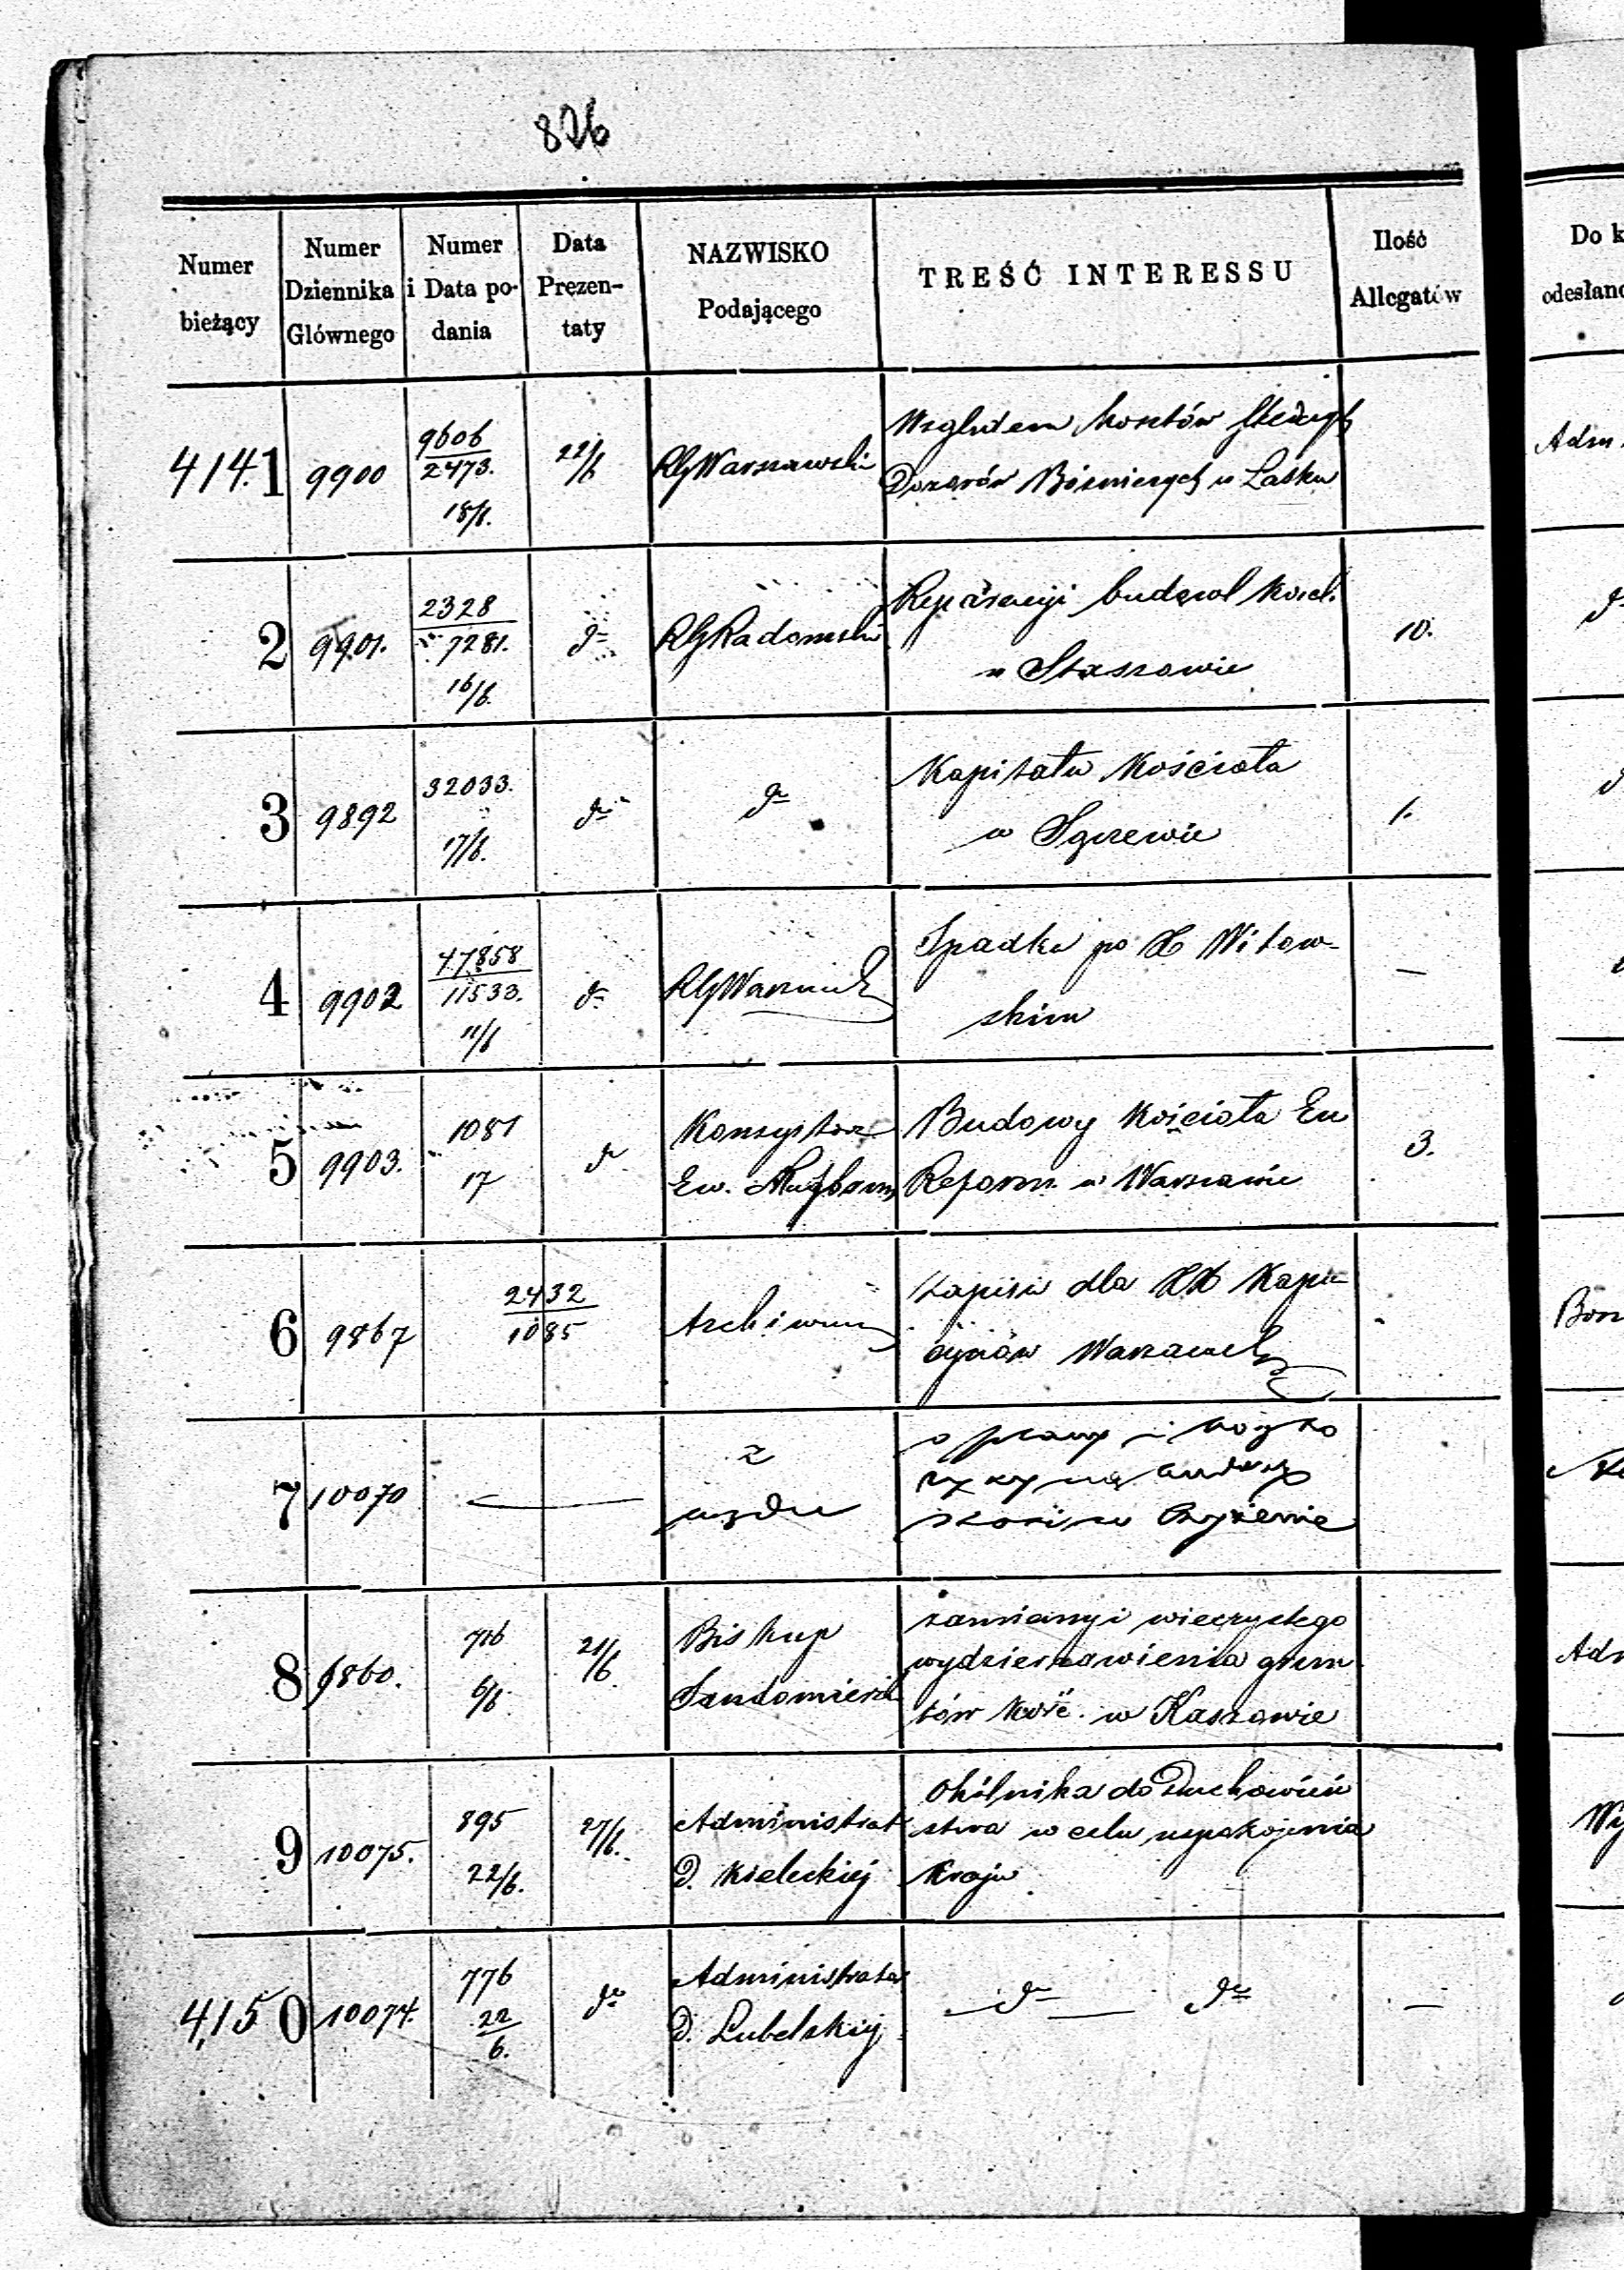 826
Numer bieżący
Numer Dziennika Głównego
Numer i Data podania
Data Prezentaty
NAZWISKO Podającego
TREŚĆ INTERESSU
Ilość Allegatów
Do k
odesłano
4141 9900 9606/2473. 18/6. 22/6 RGWarszawski
Względem kosztów
Dozorów Bóżniczych w Łasku
Adm
2 9901. 2328/7281. 16/6. dº RGRadomski 10.
Reparacyi budowl kości.
w Staszowie
3 9892 32033. 17/6. dº dº 1.
Kapitału Kościoła
w Sgrzewie
4 9902 47858/11533. 11/6 dº RGWarszawsk —
Spadku po X Witow-
skim
5 9903. 1081 17 dº 3.
Konsystorz
Ew. Augsburg
Budowy Kościoła Ew
Reform. w Warszawie
6 9867 2432/1085 Archiwum
Zapisu dla XX Kapu-
cynów Warszawsk
7 10070 — z
urzędu
8 9860. 716 6/6. 21/6.
Biskup
Sandomiersk
zamiany i wieczystego
wydzierżawienia grun
tów kość. w Kaszowie
Adm
9 10075. 895 22/6. 27/6.
Administrat
D. Kieleckiej
Okólnika do Duchowień
stwa w celu uspokojenia
Kraju
Wy
4150 10074. 776 22/6. dº
Administrator
D. Lubelskiej
dº dº —